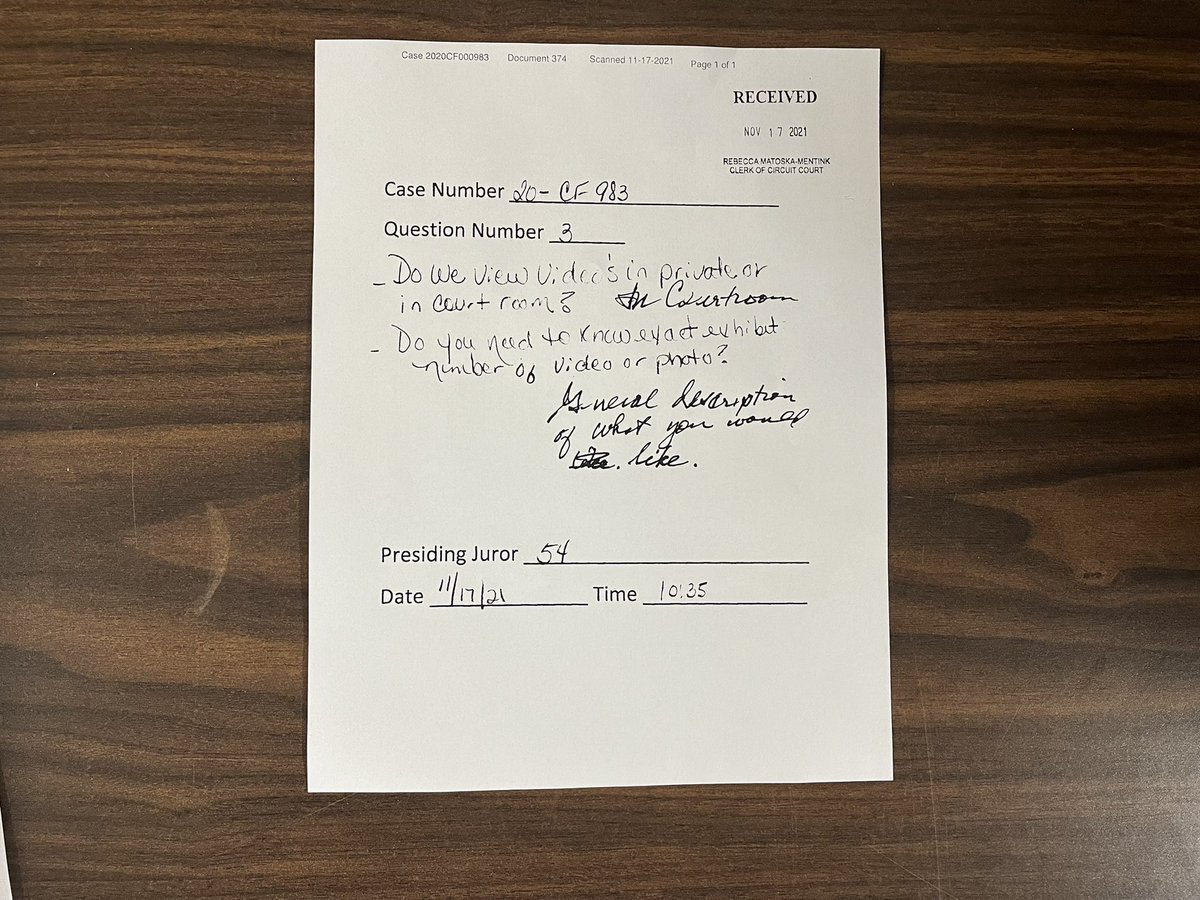 Case 2020CF000983 Document 374 Scanned 11-17-2021 Page 1 of 1
RECEIVED
NOV 17 2021
REBECCA MATOSKA-MENTINK
CLERK OF CIRCUIT COURT
Case Number 20- CF 983
Question Number 3
- Do we view video's in private or
in court room? In Courtroom
- Do you need to know exact exhibit
number of video or photo?
General description
of what you would
like.
Presiding Juror 54
Date 11/17/21 Time 10:35